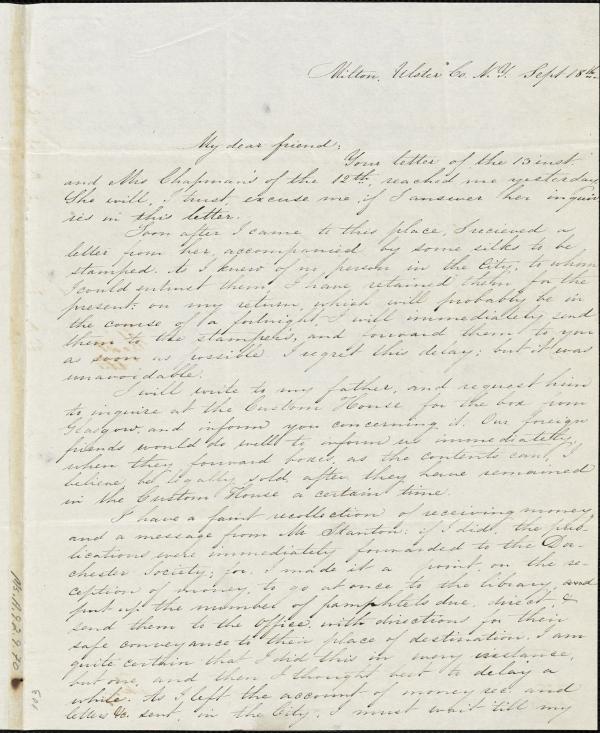 Milton, Ulster Co. N.Y. Sept 18th
My dear friend;
Your letter of the 15 inst
and Mrs Chapman's of the 12th, reached me yesterday
She will, I trust, excuse me, if I answer her inqui
ries in this letter.
Soon after I came to this place, I recieved a
letter from her, accompanied by some silks to be
stamped. As I knew of no person in the City, to whom
I could entrust them, I have retained them for the
present: on my return, which will probably be in
the course of a fortnight, I will immediately send
them to the stampers, and forward them to you
as soon as possible. I regret this delay; but it was
unavoidable.
I will write to my father, and request him
to inquire at the Custom House for the box from
Glasgow, and inform you concerning it. Our foreign
friends would do well to inform us immediately,
when they forward boxes, as the contents can, I
believe, be legally sold, after they have remained
in the Custom House a certain time.
I have a faint recollection of receiving money
and a message from Mr Stanton: if I did, the pub
lications were immediately forwarded to the Do-
chester Society; for I made it a point, on the re-
ception of money, to go at once to the library, and
put up the number of pamphlets due, direct, &
send them to the office, with directions for their
safe conveyance to their place of destination. I am
quite certain that I did this in every instance,
but one, and then I thought best to delay a
while. As I left the account of money rec. and
letters &c. sent, in the City, I must wait till my
Ms.A.9.2.9.70
103